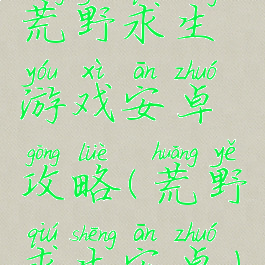 荒野求生
yóu xì ān zhuó
游戏安卓
gōng lüè huāng yě
攻略(荒野
qiú shēng ān zhuó
求生安卓)